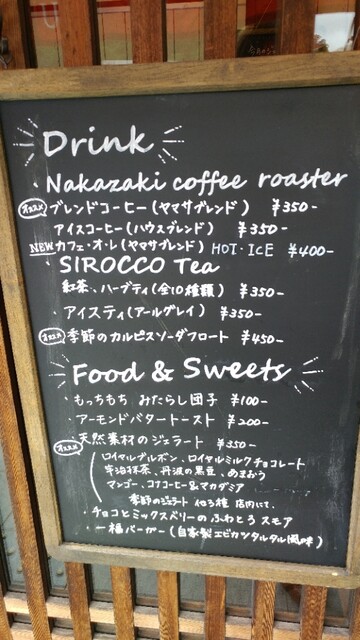 Drink
・Nakazaki coffee roaster
オススメ ブレンドコーヒー(ヤマサブレンド) ¥350-
アイスコーヒー(ハウスブレンド) ¥350-
NEW カフェ・オ・レ(ヤマサブレンド) HOT・ICE ¥400-
・SIROCCO Tea
紅茶、ハーブティ(全10種類) ¥350-
・アイスティ(アールグレイ) ¥350-
オススメ ・季節のカルピスソーダフロート ¥450-
Food & Sweets
・もっちもち みたらし団子 ¥100-
・アーモンドバタートースト ¥200-
オススメ ・天然素材のジェラート ¥350-
ロイヤルブルボン、ロイヤルミルクチョコレート
宇治抹茶、丹波の黒豆、あまおう
マンゴー、ココヒーヒー&マカダミア
季節のジェラート 他3種 店内にて.
・チョコとミックスベリーのふわとろ スモア
・一福バーガー(自家製エビカツタルタル風味)